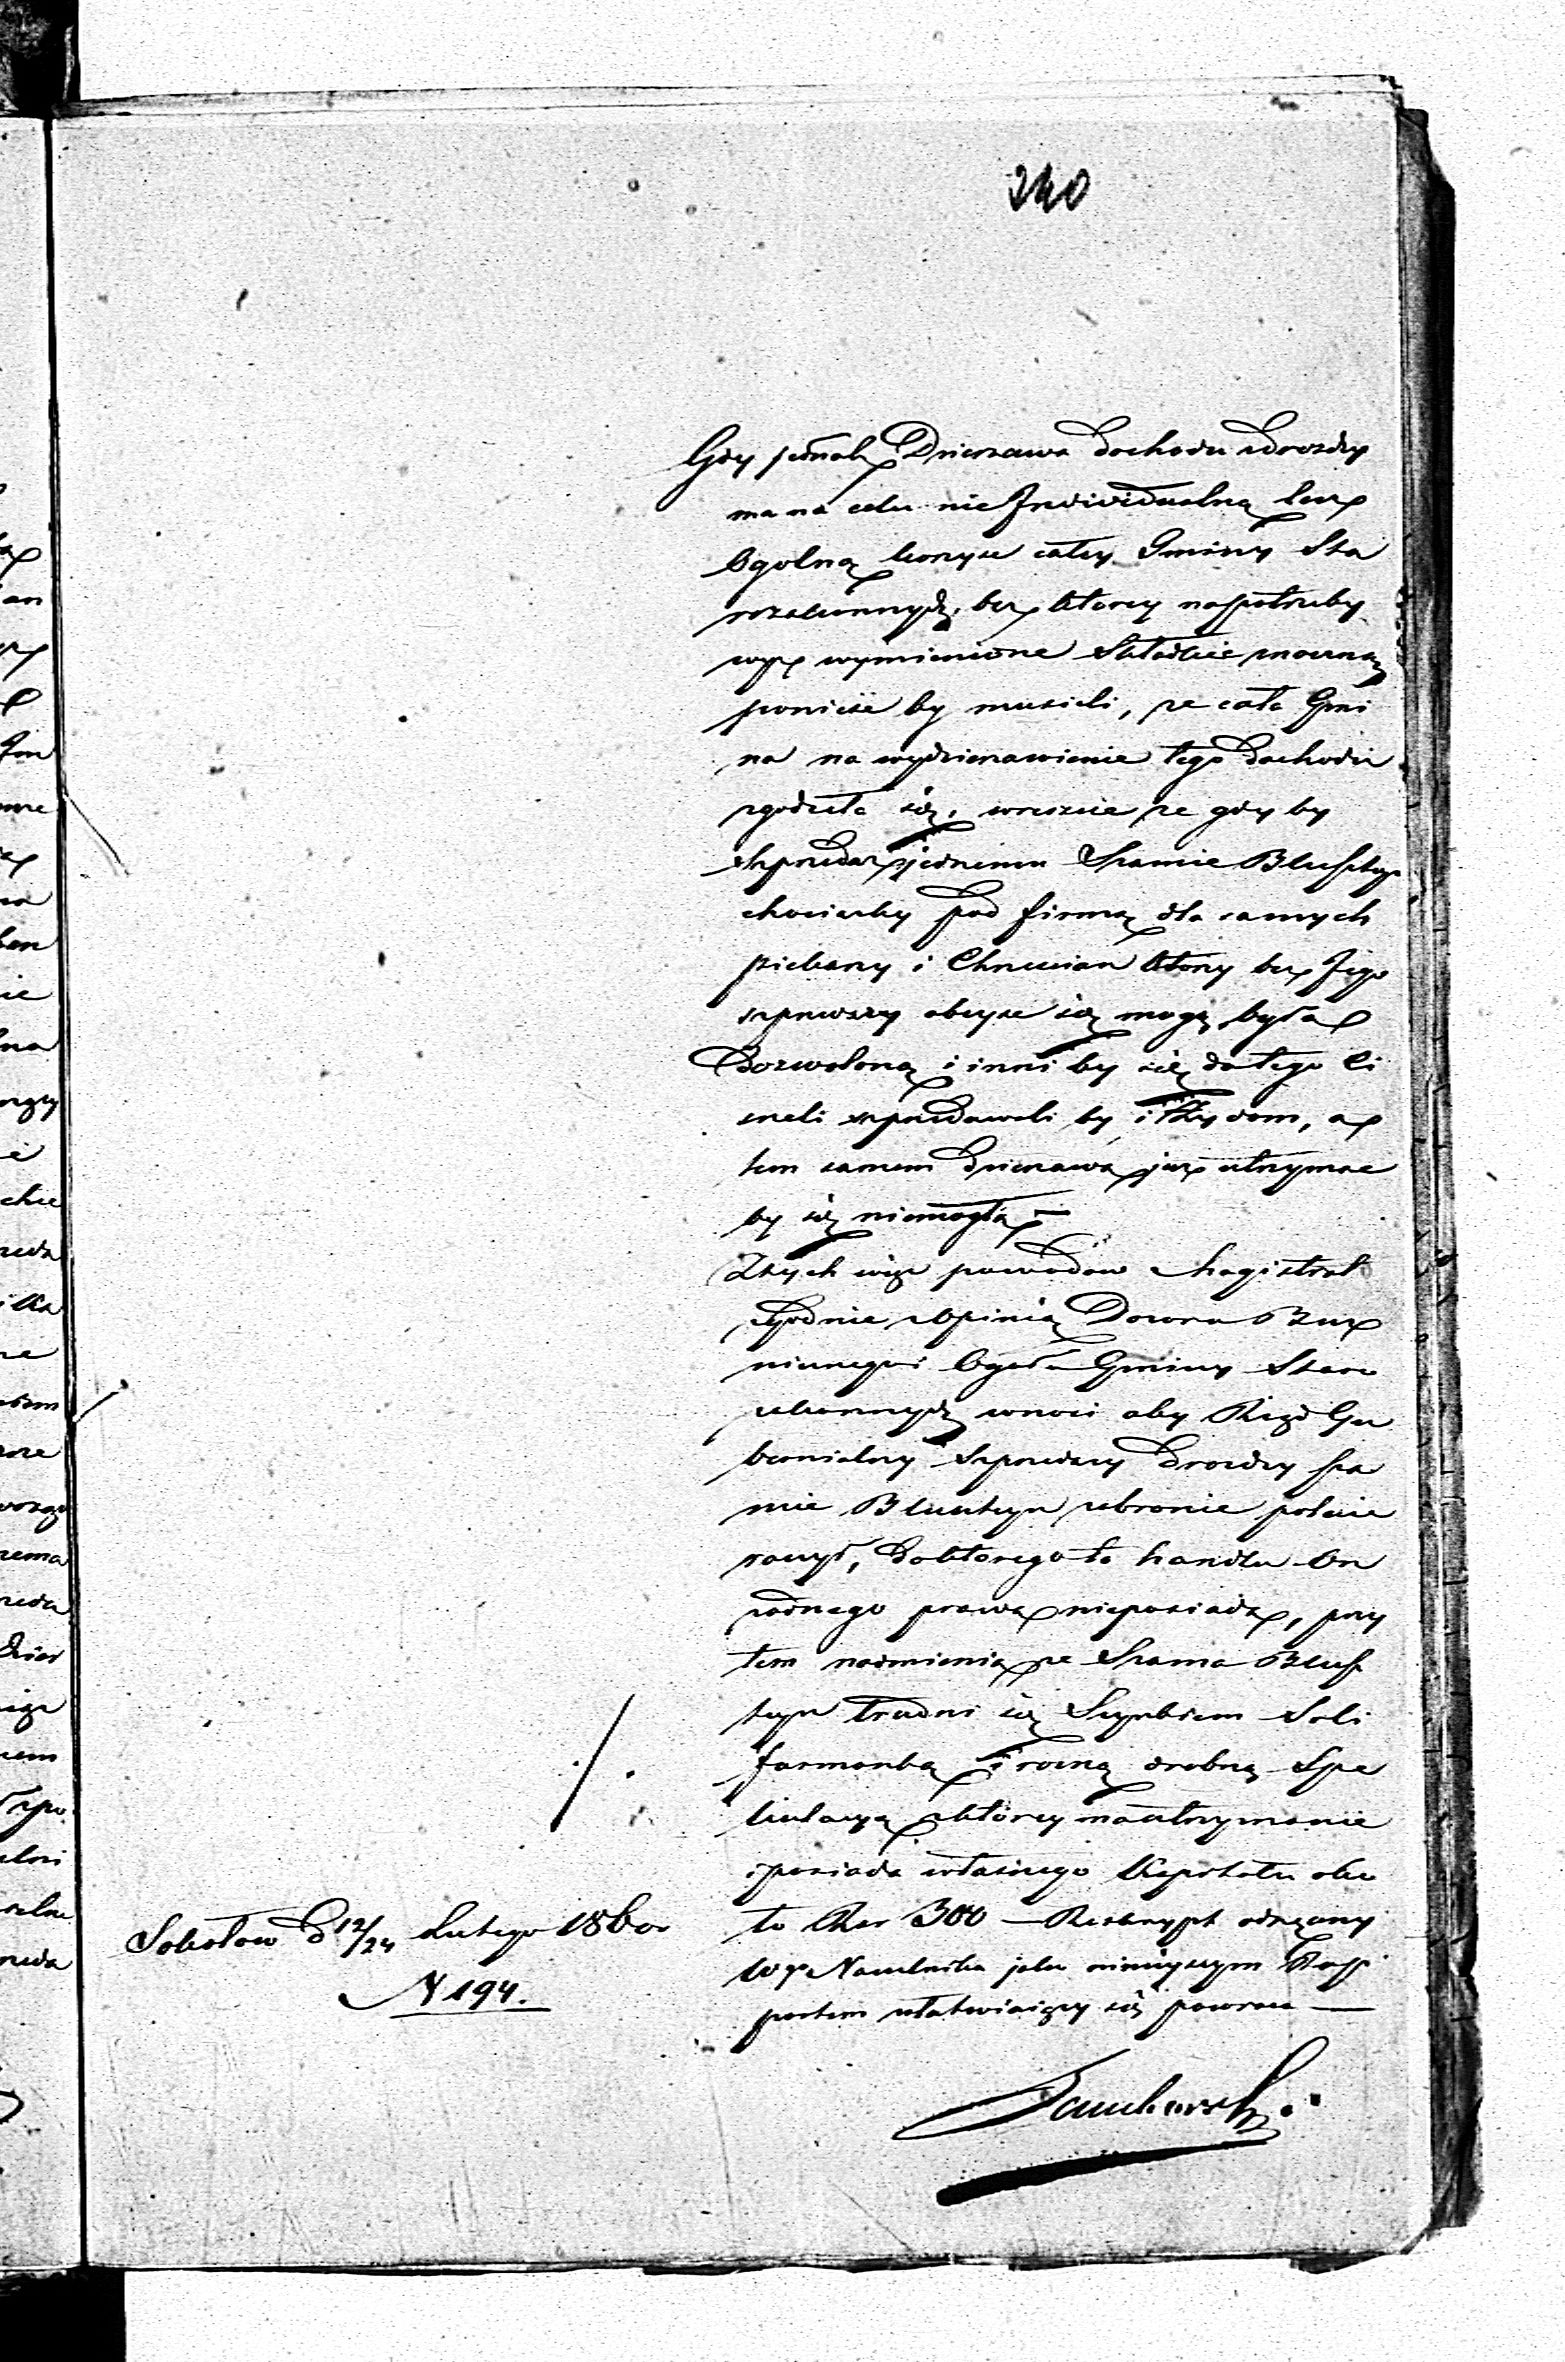 240
Gdy jednak Dzierzawa dochodu z drozdzy
ma na celu nie Individualną lecz
Ogolną korzysc całey Gminy Sta
rozakonnych, bez ktorey na potrzeby
wyz wymienione Składkie znaczną
poniesc by musieli, ze cała Gmi
na na wydzierzawienie tego dochodu
zgodziła się, wreszcie ze gdy by
Szprzedaz jednemu Szamie Blusztyn
chociazby pod firmą dla samych
piekarzy i Chrzescian ktorzy bez Jego
szprzedazy obeysc się mogą, była
Dozwoloną i inni by się do tego ci
sneli szprzedawali by i Zydom, a
tem samem dzierzawa juz utrzymac
by się niemogła –
Z tych więc powodow Magistrat
zgodnie z Opinią Dozoru Boz
niczego i Ogołu Gminy Staro
zakonnych wnosi aby Rząd Gu
bernialny Szprzedazy Drozdzy Sza
mie Blusztyn zabronic polecic
raczył, do ktorego to handlu On
zadnego prawa nieposiada, przy
tem nadmienia ze Szama Blusz
tyn trudni się Szynkiem Soli
farmanką i rozną drobną Spe
kulacyą z ktorey ma utrzymanie
i posiada własnego Kapitału oko
ło Rsr 300 — Reskrypt odręczny
W° Naczelnika jako ninieyszym Rap
portem załatwiaiący się powraca —
Sokołow d 12/24 Lutego 1860 r
N 194.